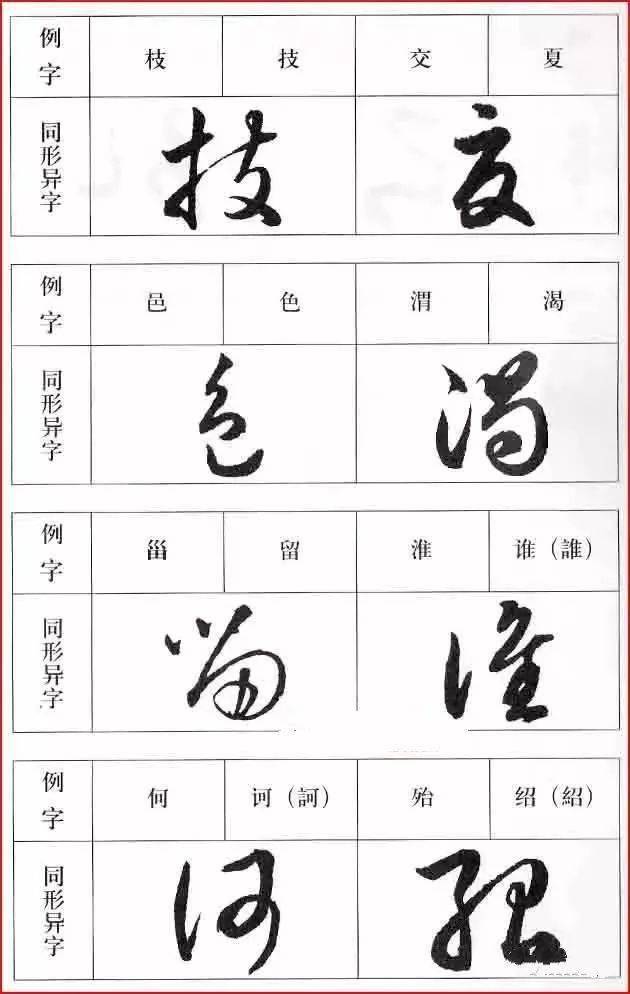 例字 枝 技 交 夏
同形异字 技 交
例字 邑 色 渭 渴
同形异字 色 渴
例字 甾 留 淮 谁（誰）
同形异字 留 淮
例字 何 诃（訶） 殆 绍（紹）
同形异字 何 绍